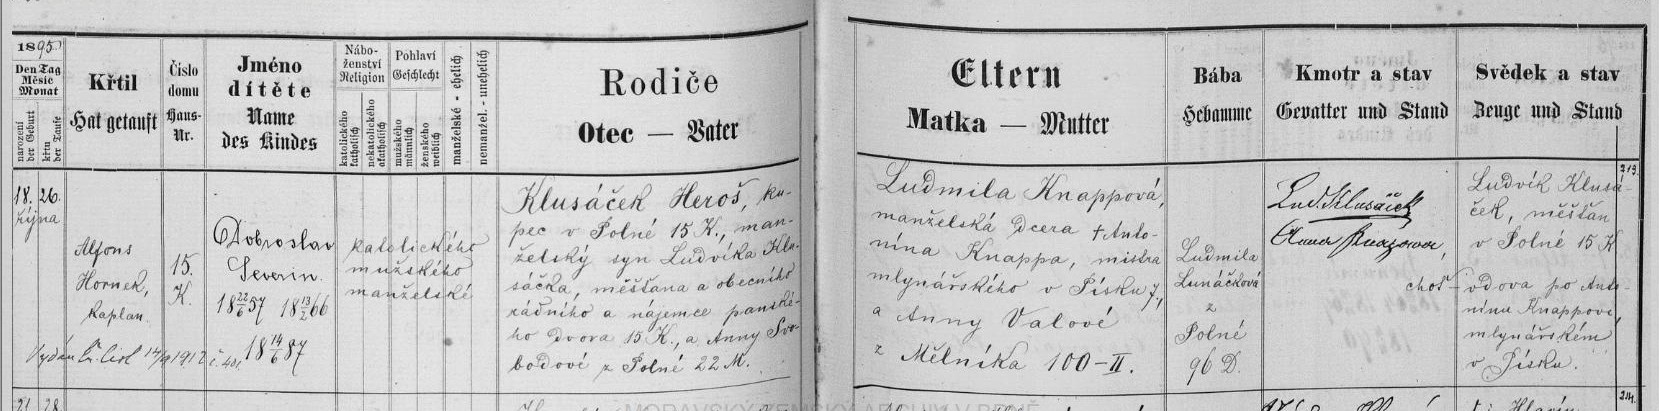 1895
Den Tag
Měsíc
Monat
narození
der Geburt
křtu
der Taufe
Křtil
Hat getauft
Číslo
domu
Haus-
Nr.
Jméno
dítěte
Name
des Kindes
Nábo-
ženství
Religion
katolického
katholisch
nekatolického
akatholisch
Pohlaví
Geschlecht
mužského
männlich
ženského
weiblich
manželské - ehelich
nemanžel. - unehelich
Rodiče
Otec — Vater
Eltern
Matka — Mutter
Bába
Hebamme
Kmotr a stav
Gevatter und Stand
Svědek a stav
Zeuge und Stand
18. 26.
října
Alfons
Hornek,
kaplan.
15.
K.
Dobroslav
Severin.
18 22/6 57 18 13/2 66
18 14/6 87
katolického
mužského
manželské
Klusáček Heroš, ku-
pec v Polné 15 K., man-
želský syn Ludvíka Klu-
sáčka, měšťana a obecního
radního a nájemce panské-
ho dvora 15 K., a Anny Svo-
bodové z Polné 22 M.
Ludmila Knappová,
manželská dcera † Anto-
nína Knappa, mistra
mlynářského v Písku
a Anny Valové
z Mělníka 100-II.
Ludmila
Lunáčková
z
Polné
96 D.
Lud. Klusáček
Anna Knappova,
choť
213.
Ludvík Klusá-
ček, měšťan
v Polné 15 K
vdova po Anto-
nínu Knappovi,
mlynářském
v Písku.
Vydán 14/9 1912
21. 28.
214.
MORAVSKÝ ZEMSKÝ ARCHIV V BRNĚ